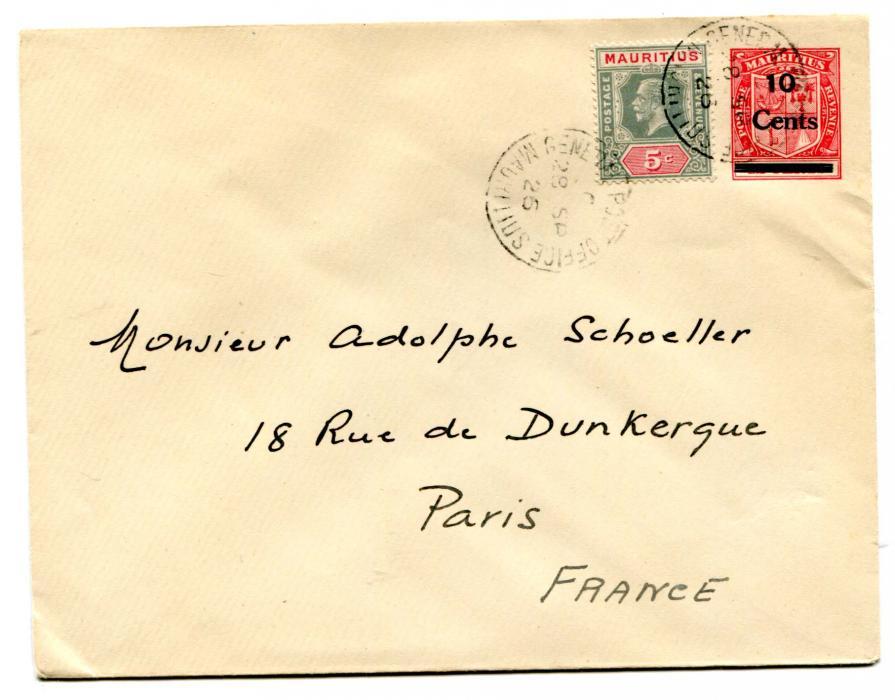 MAURITIUS
POSTAGE & REVENUE
5c
MAURITIUS
POSTAGE REVENUE
10
Cents
GENERAL POST OFFICE
MAURITIUS
28 SP
26
Monsieur Adolphe Schoeller
18 Rue de Dunkerque
Paris
FRANCE